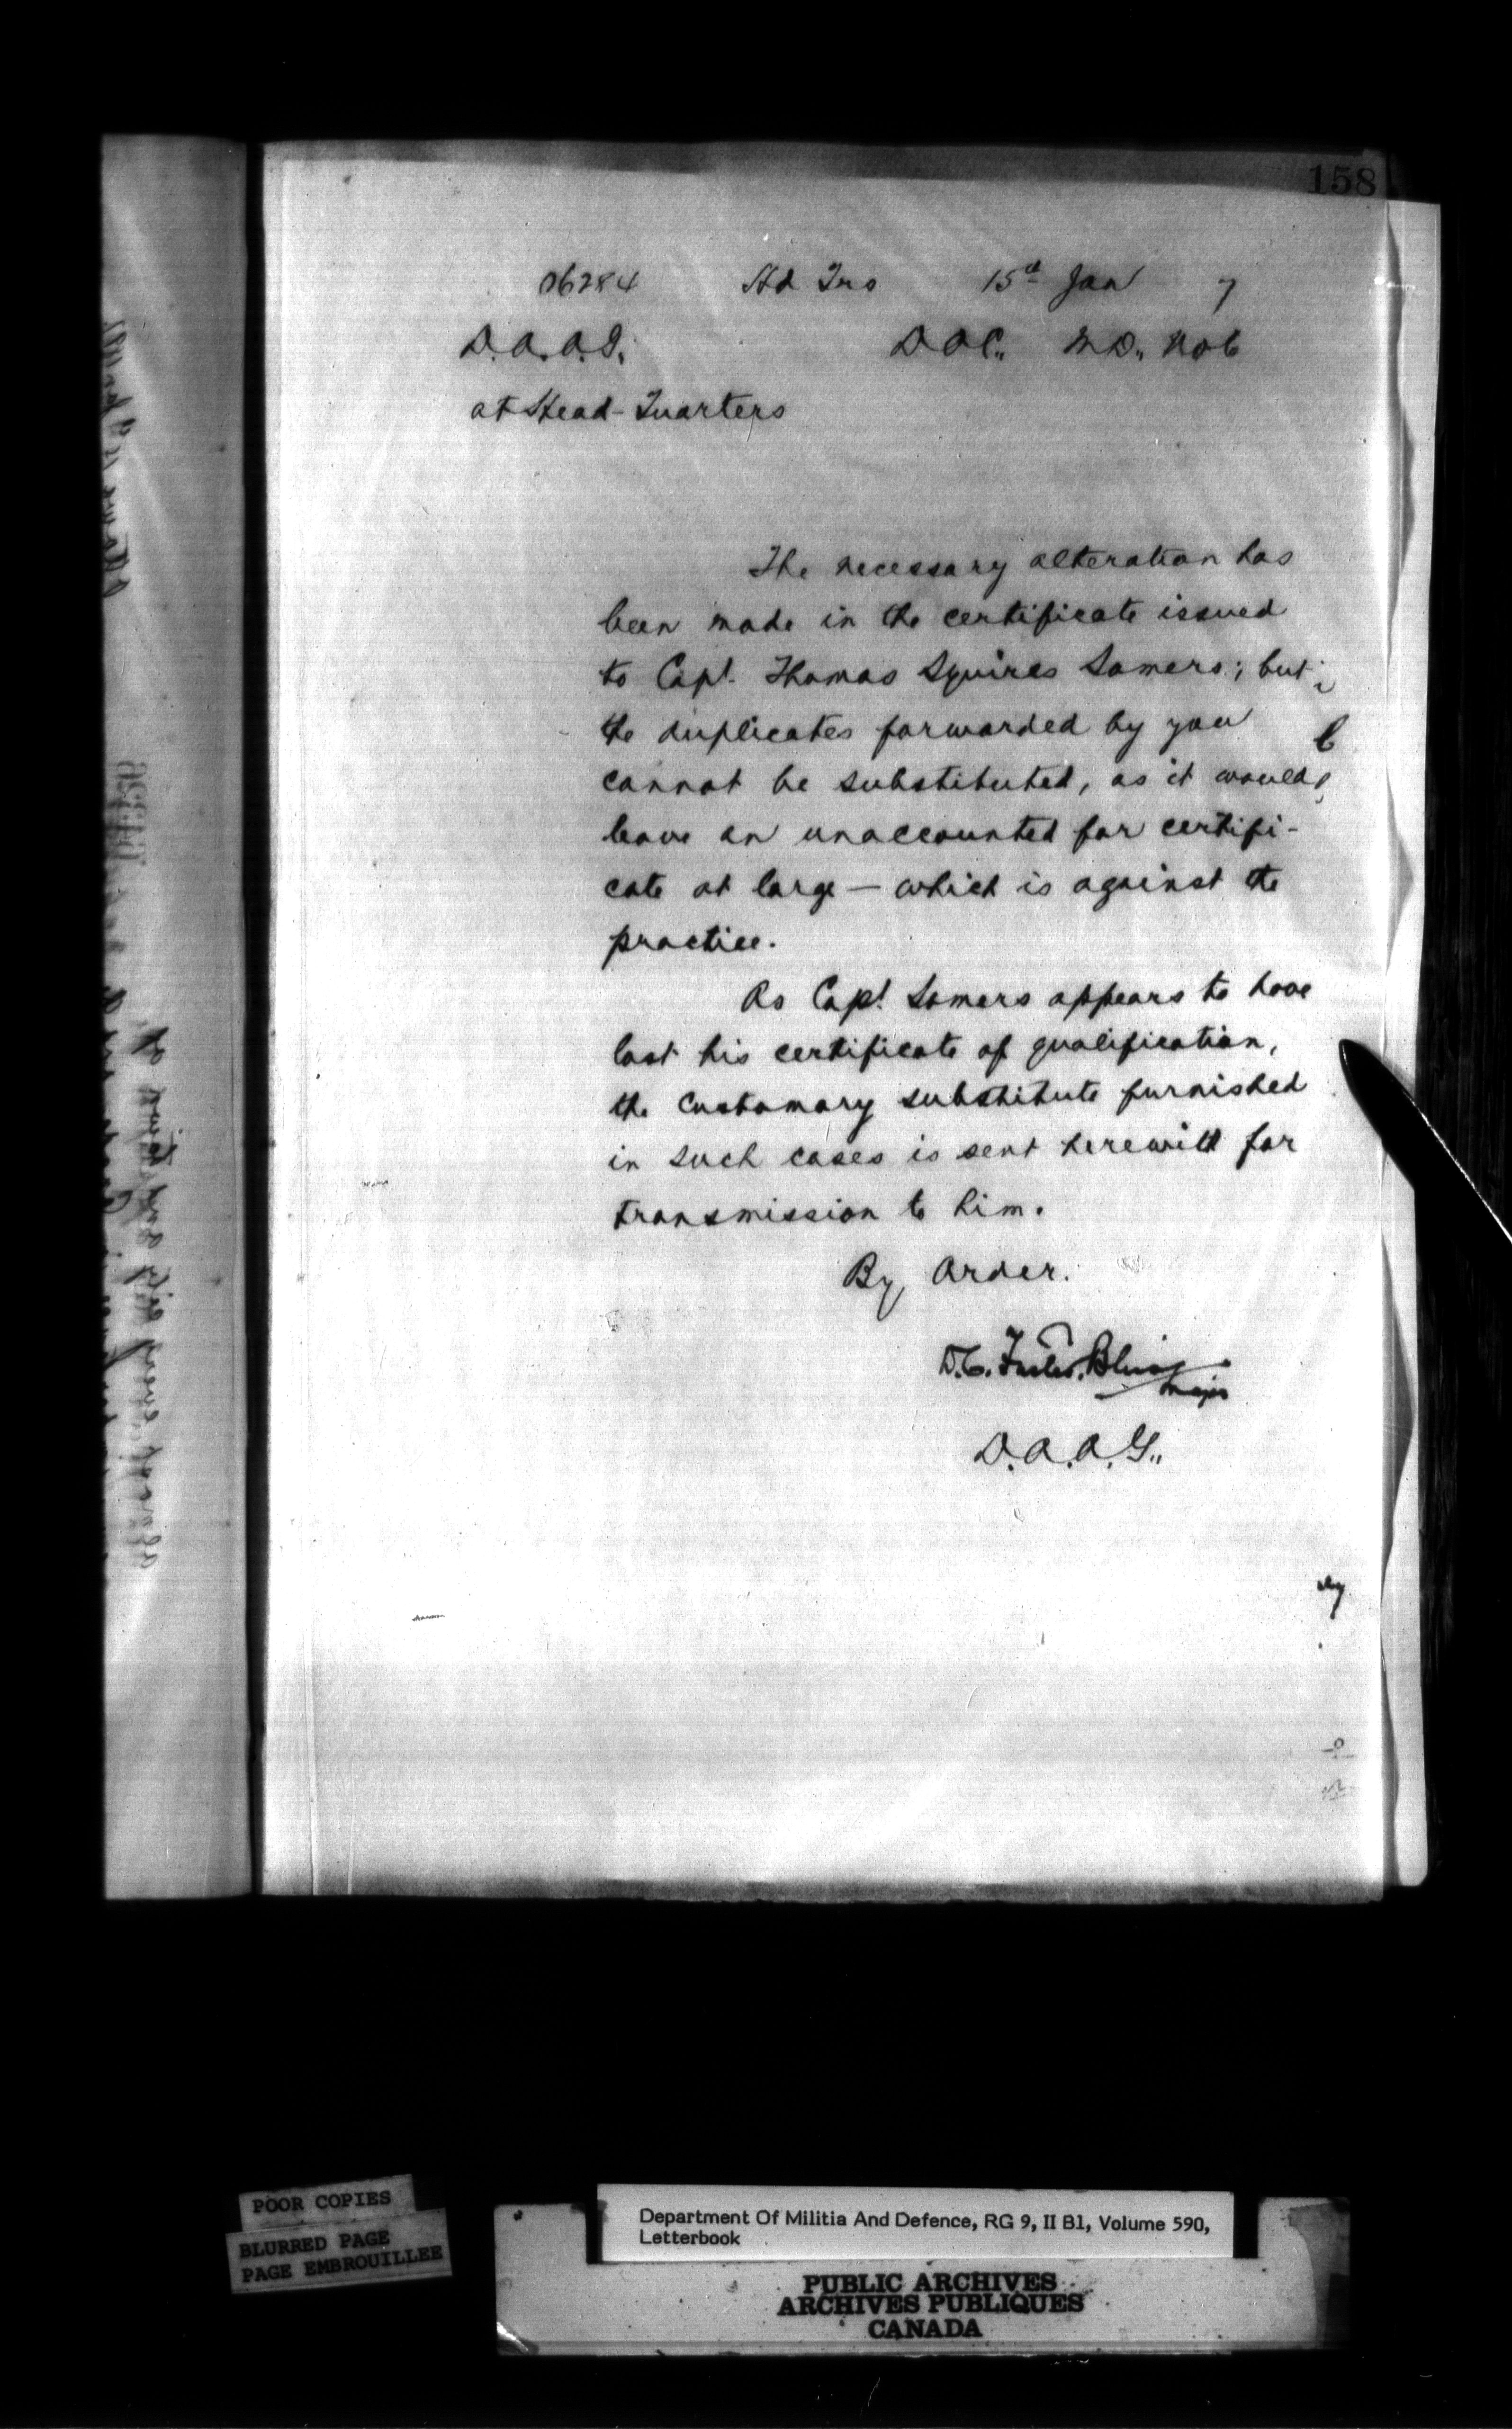 158
06284 Hd Qrs 15th Jan 7
D.A.A.G. D.O.C. M.D. No 6
at Head-Quarters
The necessary alteration has
been made in the certificate issued
to Capt. Thomas Squires Somers; but
the duplicates forwarded by you
cannot be substituted, as it would
leave an unaccounted for certifi-
cate at large — which is against the
practice.
As Capt. Somers appears to have
lost his certificate of qualification,
the customary substitute furnished
in such cases is sent herewith for
transmission to him.
By Order.
D.C. Forster Bliss
Major
D.A.A.G.
POOR COPIES
BLURRED PAGE
PAGE EMBROUILLEE
Department Of Militia And Defence, RG 9, II B1, Volume 590,
Letterbook
PUBLIC ARCHIVES
ARCHIVES PUBLIQUES
CANADA